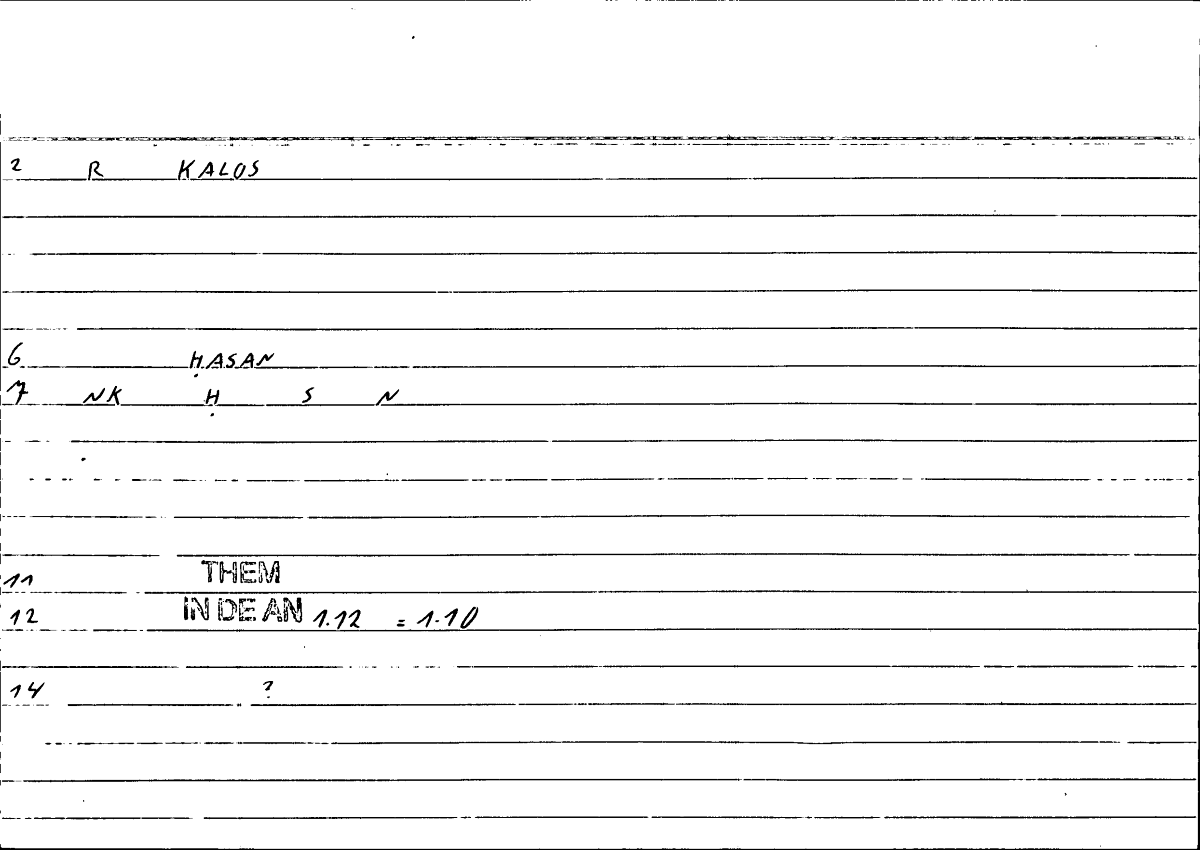 2 R KALOS
6 ḤASAN
7 NK Ḥ S N
11 THEM
12 IN DE AN 1.12 = 1.10
14 ?